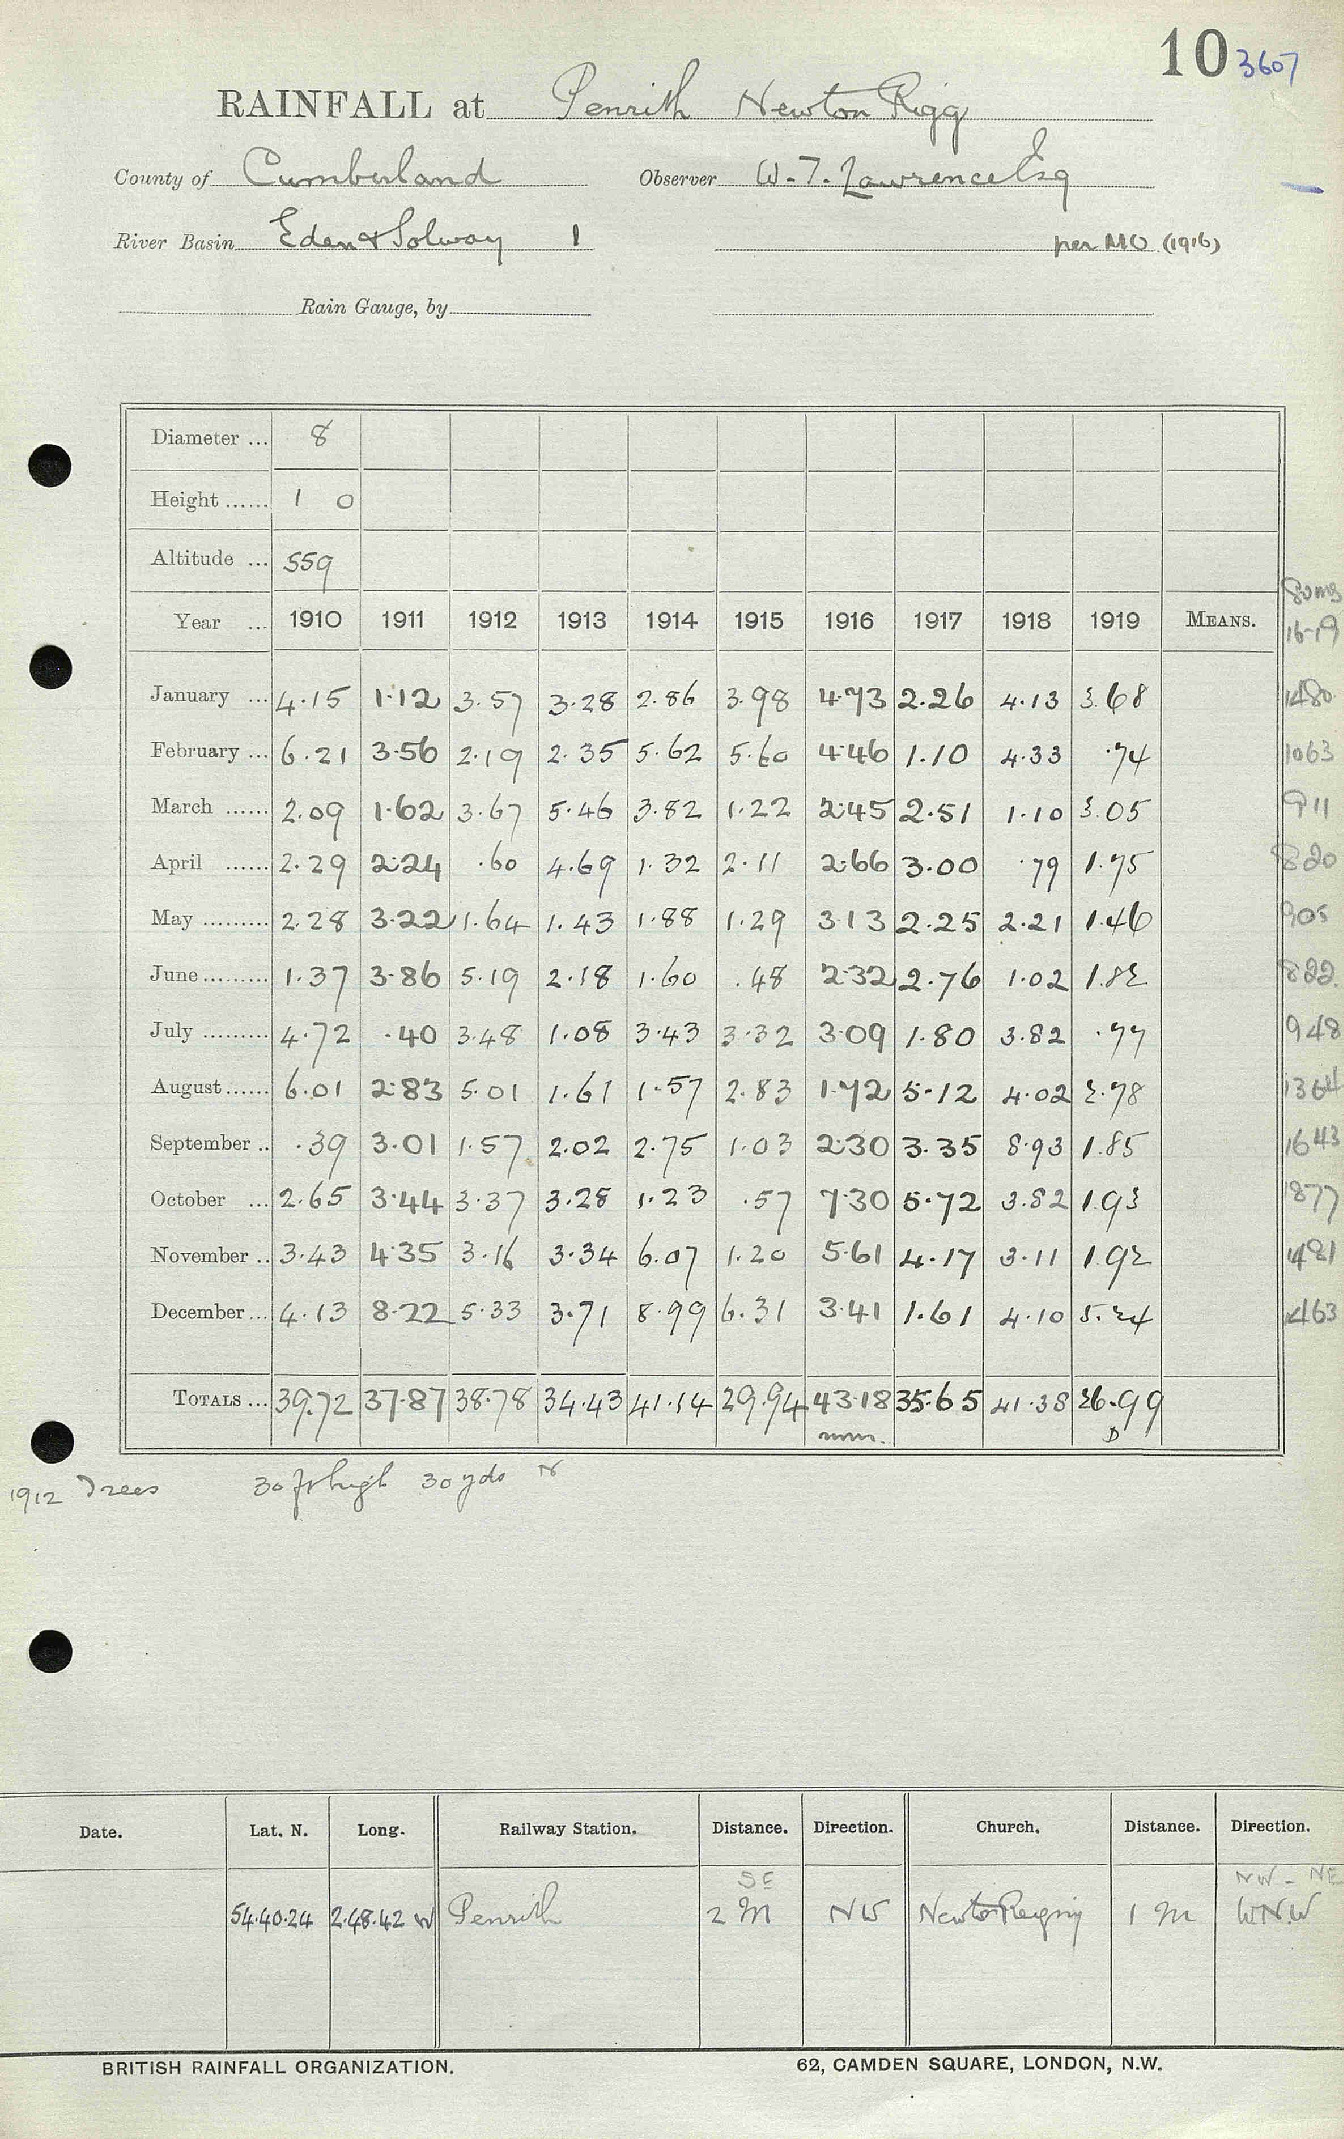 10 3607
RAINFALL at Penrith Newton Rigg
County of Cumberland Observer W. T. Lawrence Esq
River Basin Eden & Solway 1 per MO (1916)
Rain Gauge, by
Diameter ... 8
Height ...... 1 0
Altitude ... 559
Sums
Year ... 1910 1911 1912 1913 1914 1915 1916 1917 1918 1919 MEANS. 16-19
January ... 4.15 1.12 3.57 3.28 2.86 3.98 4.73 2.26 4.13 3.68 1480
February ... 6.21 3.56 2.19 2.35 5.62 5.60 4.46 1.10 4.33 .74 1063
March ...... 2.09 1.62 3.67 5.46 3.82 1.22 2.45 2.51 1.10 3.05 911
April ...... 2.29 2.24 .60 4.69 1.32 2.11 2.66 3.00 .79 1.75 820
May ......... 2.28 3.22 1.64 1.43 1.88 1.29 3.13 2.25 2.21 1.46 905
June ......... 1.37 3.86 5.19 2.18 1.60 .48 2.32 2.76 1.02 1.82 822
July ......... 4.72 .40 3.48 1.08 3.43 3.32 3.09 1.80 3.82 .77 948
August ...... 6.01 2.83 5.01 1.61 1.57 2.83 1.72 5.12 4.02 2.78 1364
September .. .39 3.01 1.57 2.02 2.75 1.03 2.30 3.35 8.93 1.85 1643
October ... 2.65 3.44 3.37 3.28 1.23 .57 7.30 5.72 3.82 1.93 1877
November .. 3.43 4.35 3.16 3.34 6.07 1.20 5.61 4.17 3.11 1.92 1481
December ... 4.13 8.22 5.33 3.71 8.99 6.31 3.41 1.61 4.10 5.24 1463
TOTALS ... 39.72 37.87 38.78 34.43 41.14 29.94 43.18 35.65 41.38 26.99
mm. D
1912 Trees 30 ft high 30 yds N
Date. Lat. N. Long. Railway Station. Distance. Direction. Church. Distance. Direction.
SE NW - NE
54.40.24 2.48.42 W Penrith 2 M NW Newton Reigny 1 M WNW
BRITISH RAINFALL ORGANIZATION. 62, CAMDEN SQUARE, LONDON, N.W.